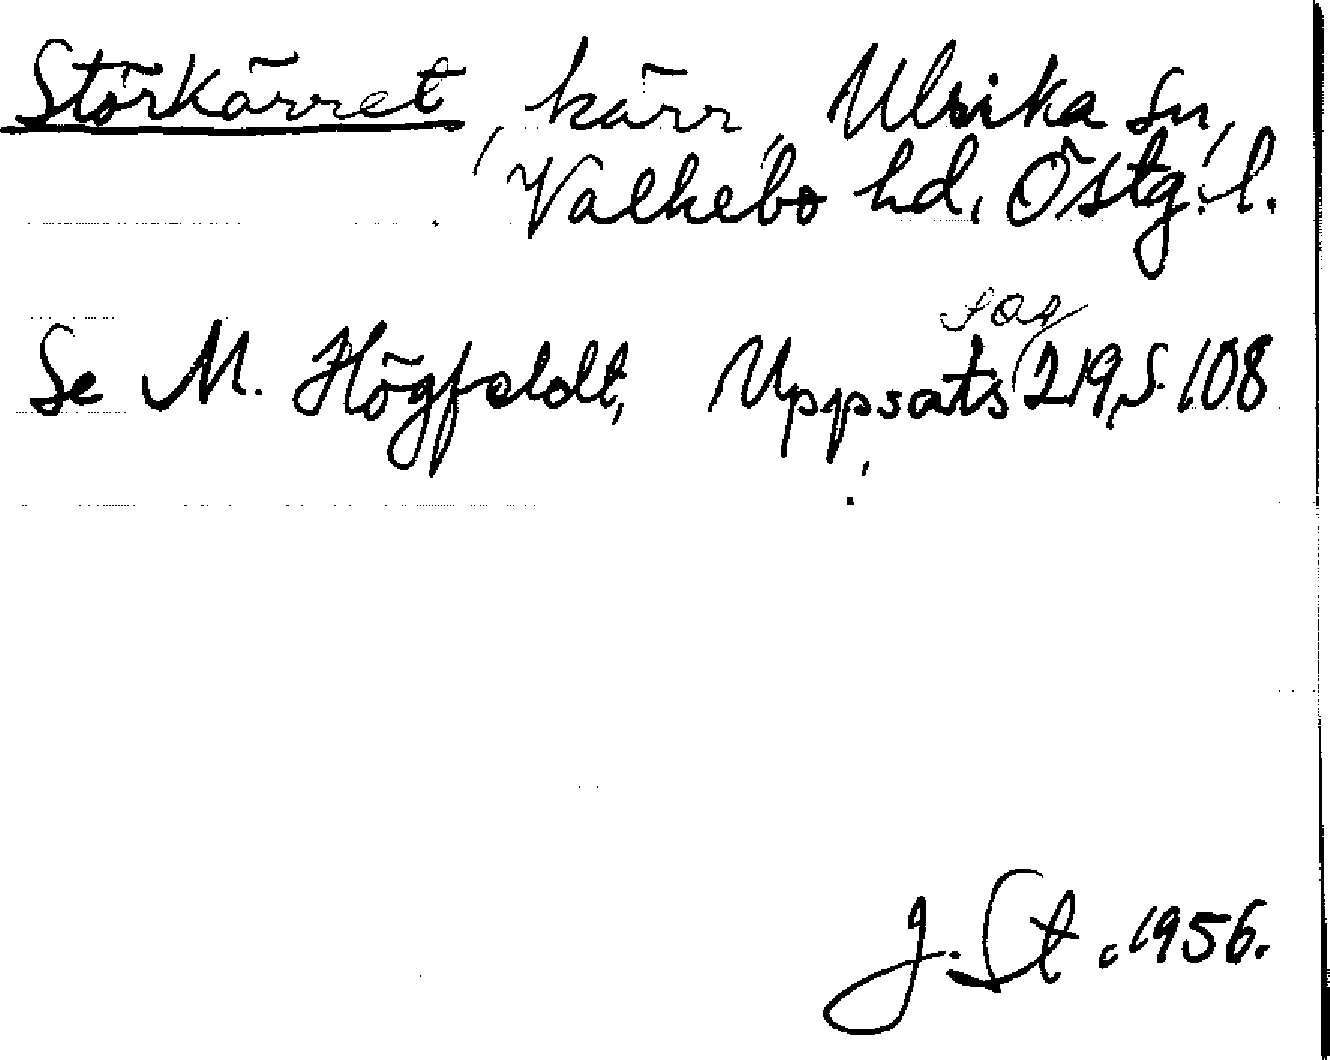 Störkärret, kärr, Ulrika sn,
Valkebo hd, Östg. l.
SOG
Se M. Högfeldt, Uppsats 219, s. 108
J. St. 1956.